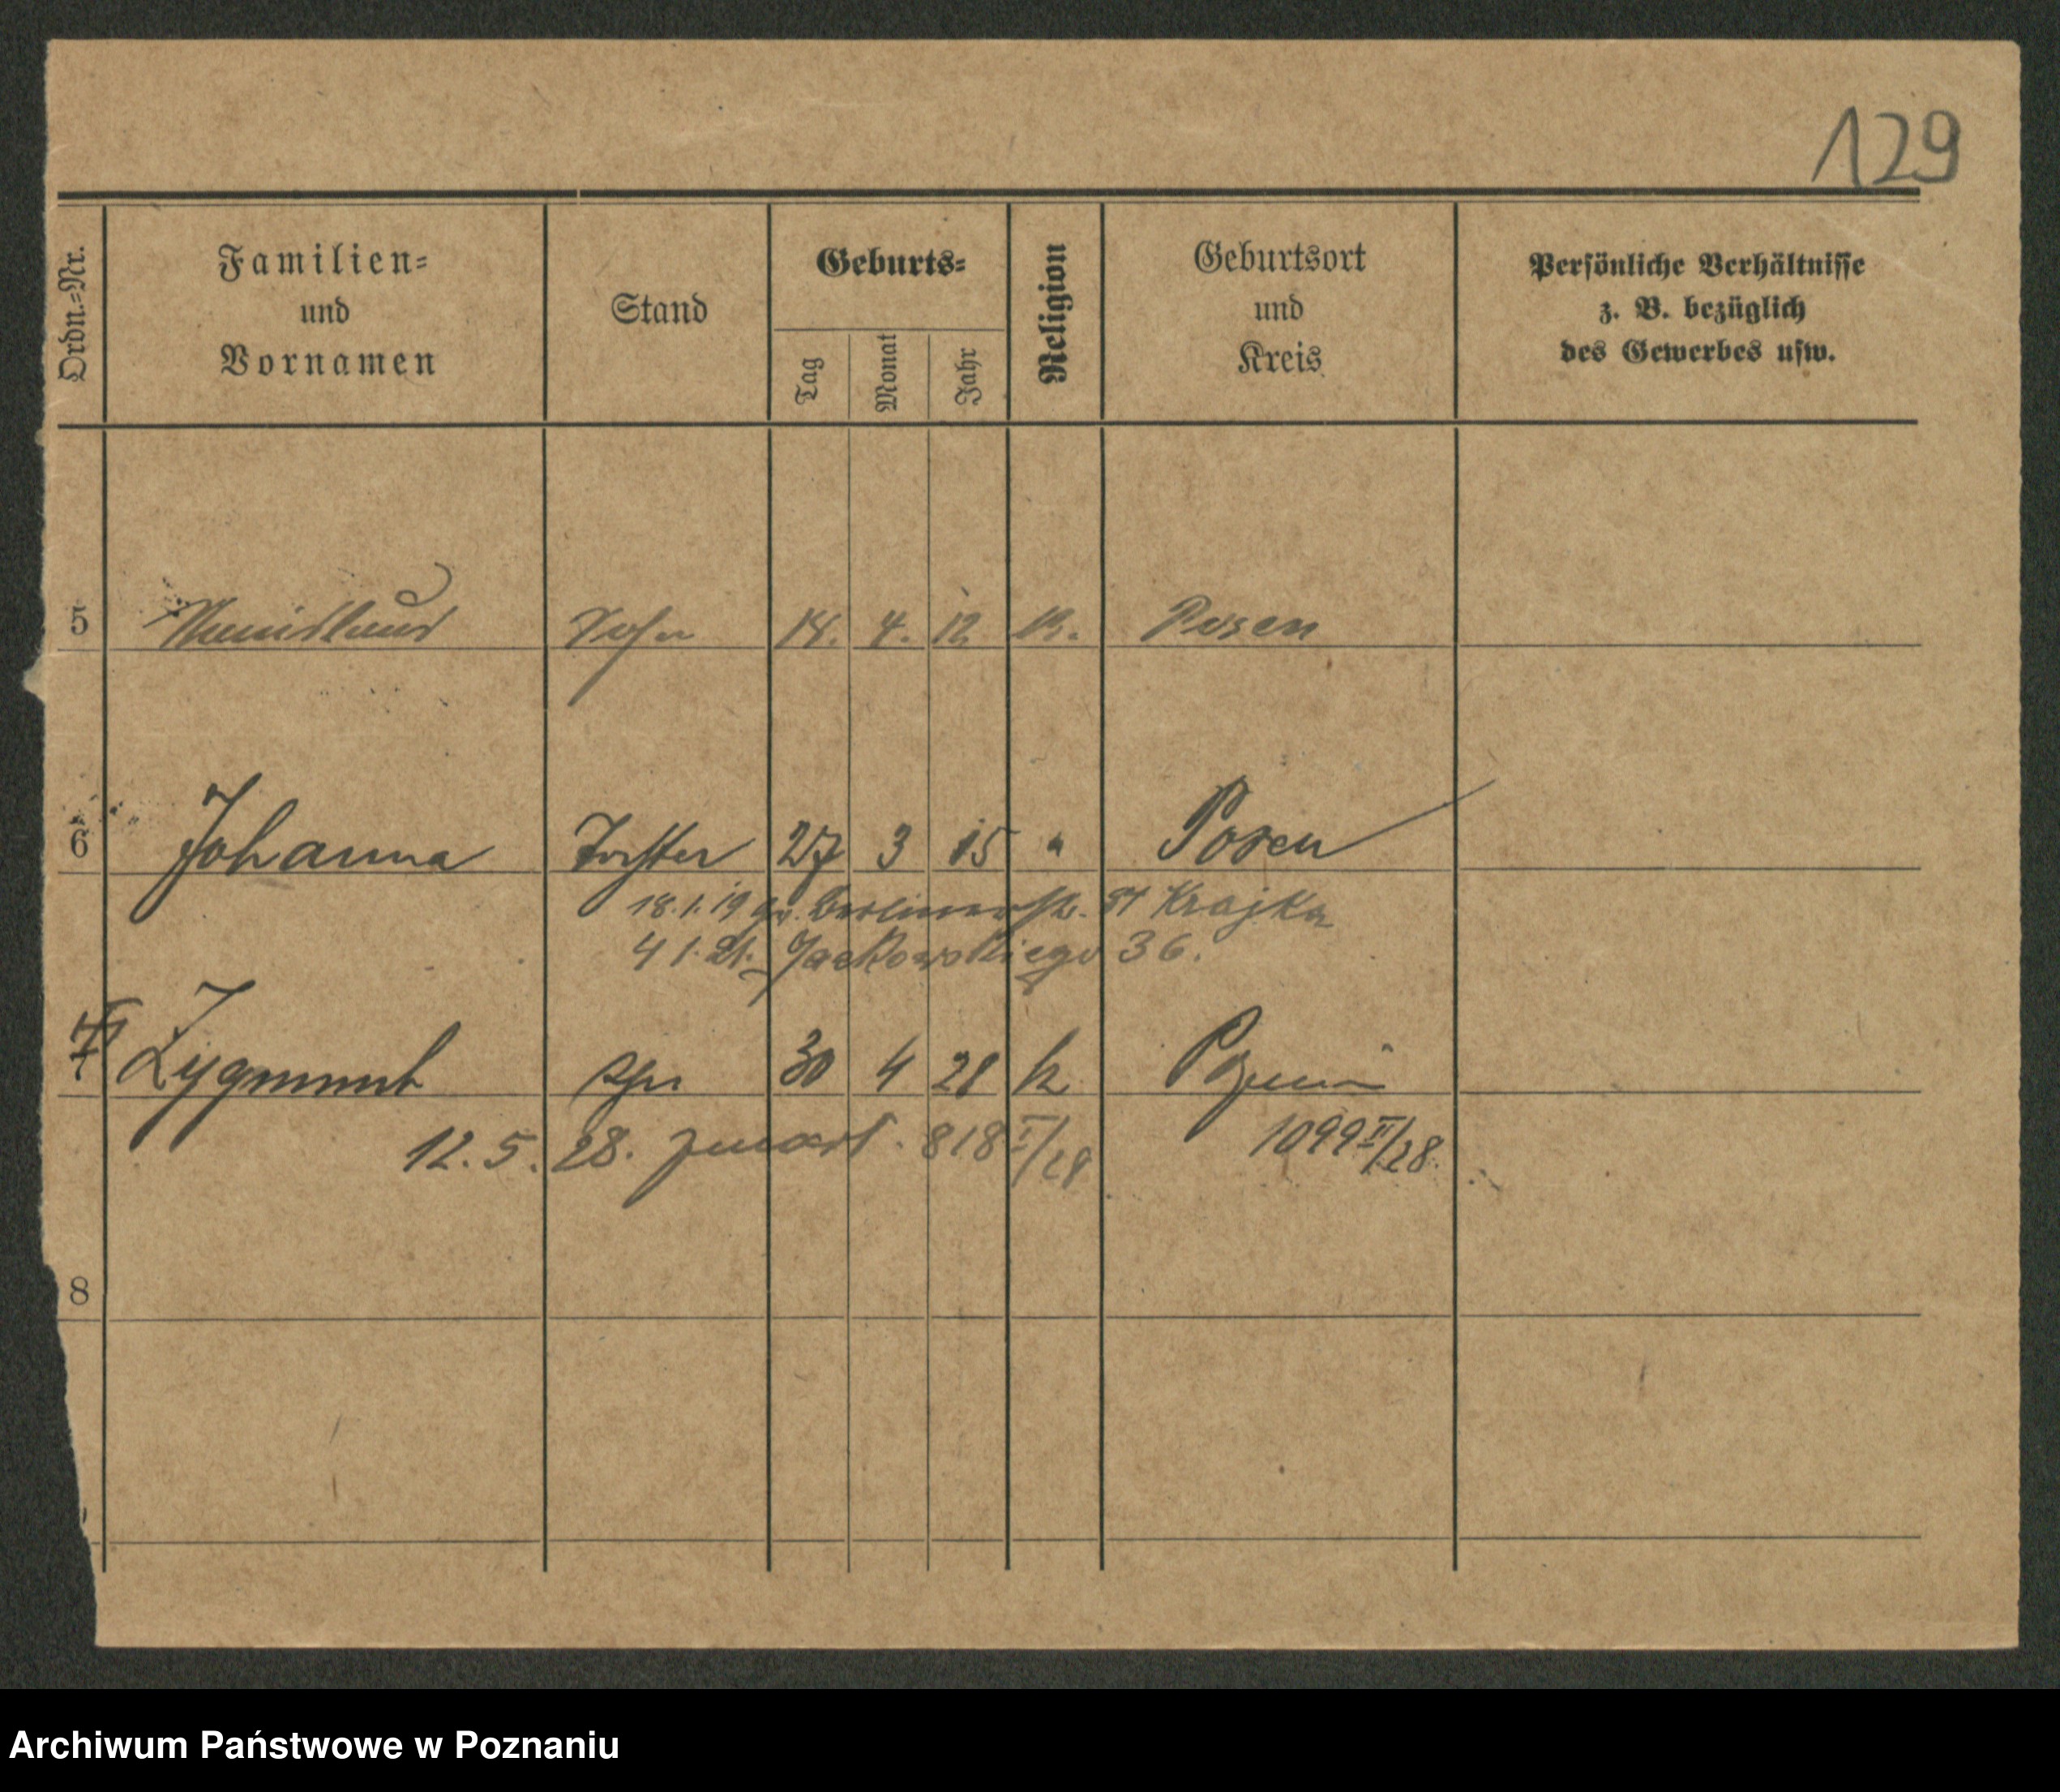 129
Ordn.-Nr.
Familien-
und
Vornamen
Stand
Geburts-
Tag
Monat
Jahr
Religion
Geburtsort
und
Kreis
Persönliche Verhältnisse
z. B. bezüglich
des Gewerbes usw.
5 Sohn 14. 4. 12. K. Posen
6 Johanna Tochter 27 3 15 " Posen
18.1.19 Berlinerstr. Krajka
4 1. 21. Jackowskiego 36.
7 Zygmunt 30 4 28 k
12. 5. 28. zmarł. 818 II/28 1099 II/28.
8
Archiwum Państwowe w Poznaniu